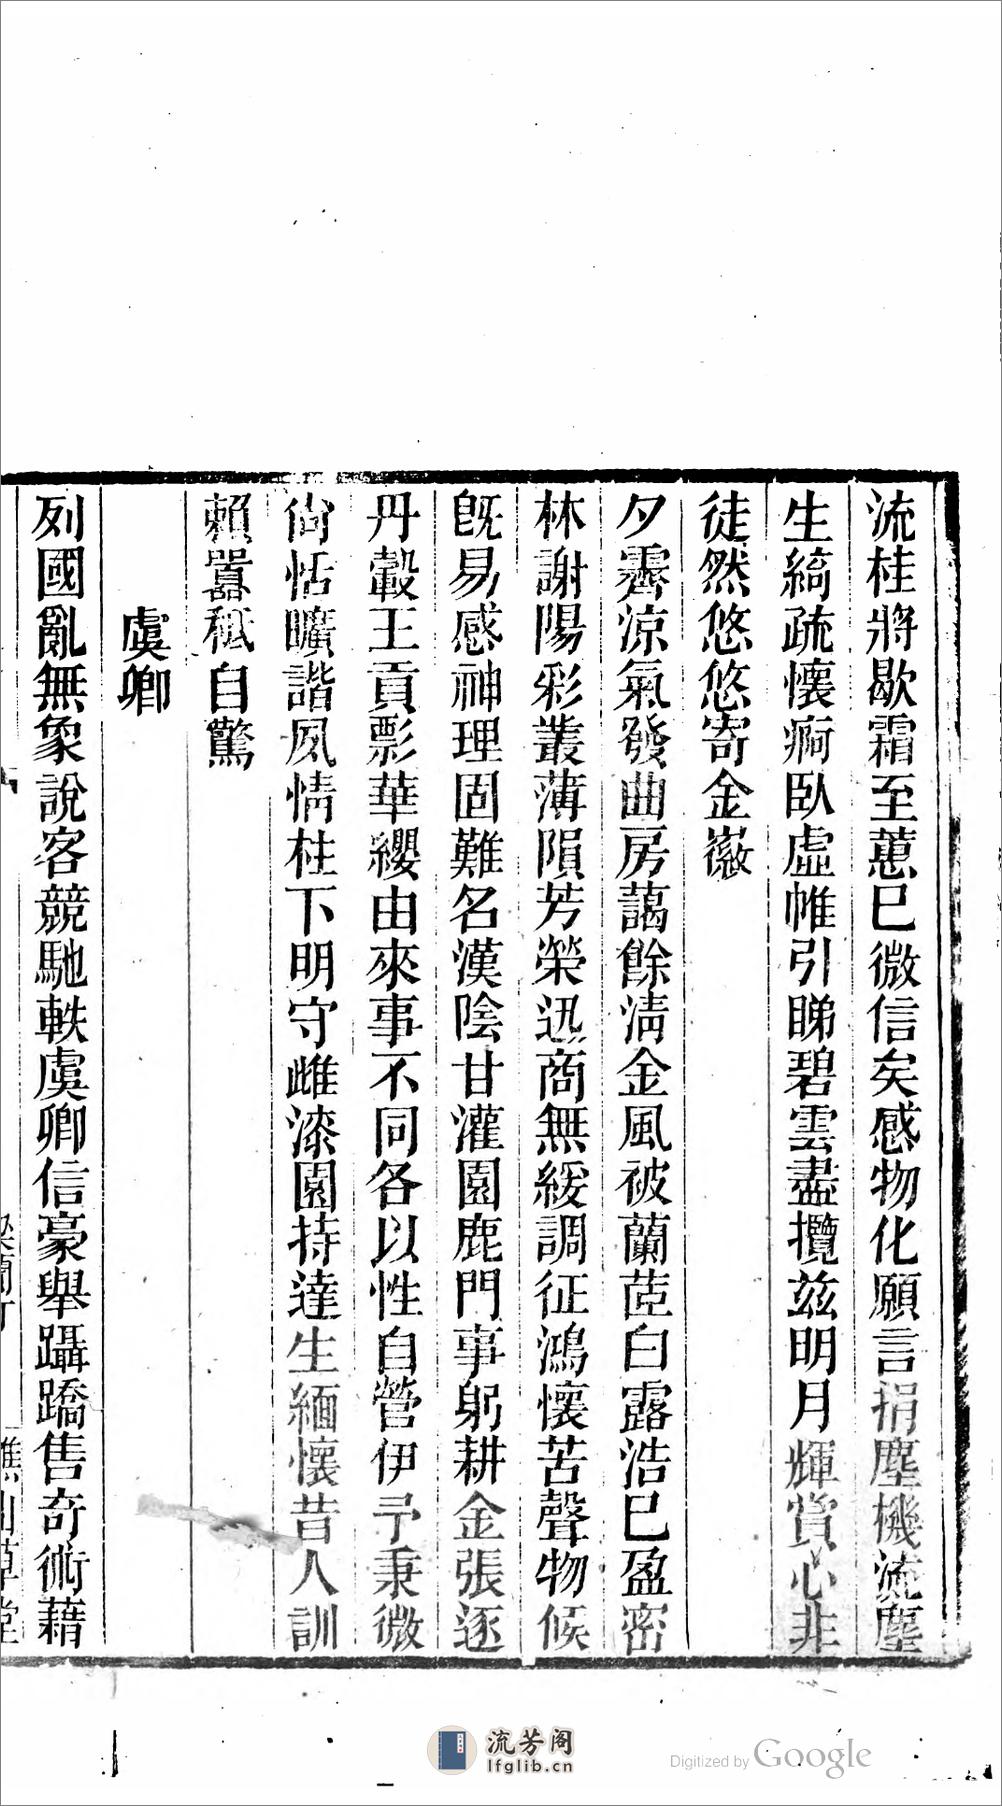 流桂將歇霜至蕙已微信矣感物化願言捐塵機流塵
生綺疏懷痾臥虛帷引睇碧雲盡攬茲明月輝賞心非
徒然悠悠寄金徽
夕霽涼氣發曲房藹餘清金風被蘭茝白露浩已盈密
林謝陽彩叢薄隕芳榮迅商無緩調征鴻懷苦聲物候
旣易感神理固難名漢陰甘灌園鹿門事躬耕金張逐
丹轂王貢影華纓由來事不同各以性自營伊予秉微
尙恬曠諧夙情柱下明守雌漆園持達生緬懷昔人訓
賴囂秪自驚
虞卿
列國亂無象說客競馳軼虞卿信豪舉躡蹻售奇術藉
草堂
流芳阁
lfglib.cn
Digitized by Google